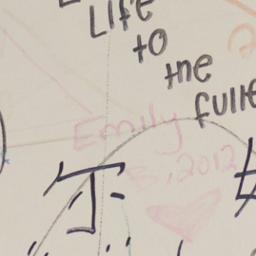 Life
to
the
fulle
Emily
3, 2012